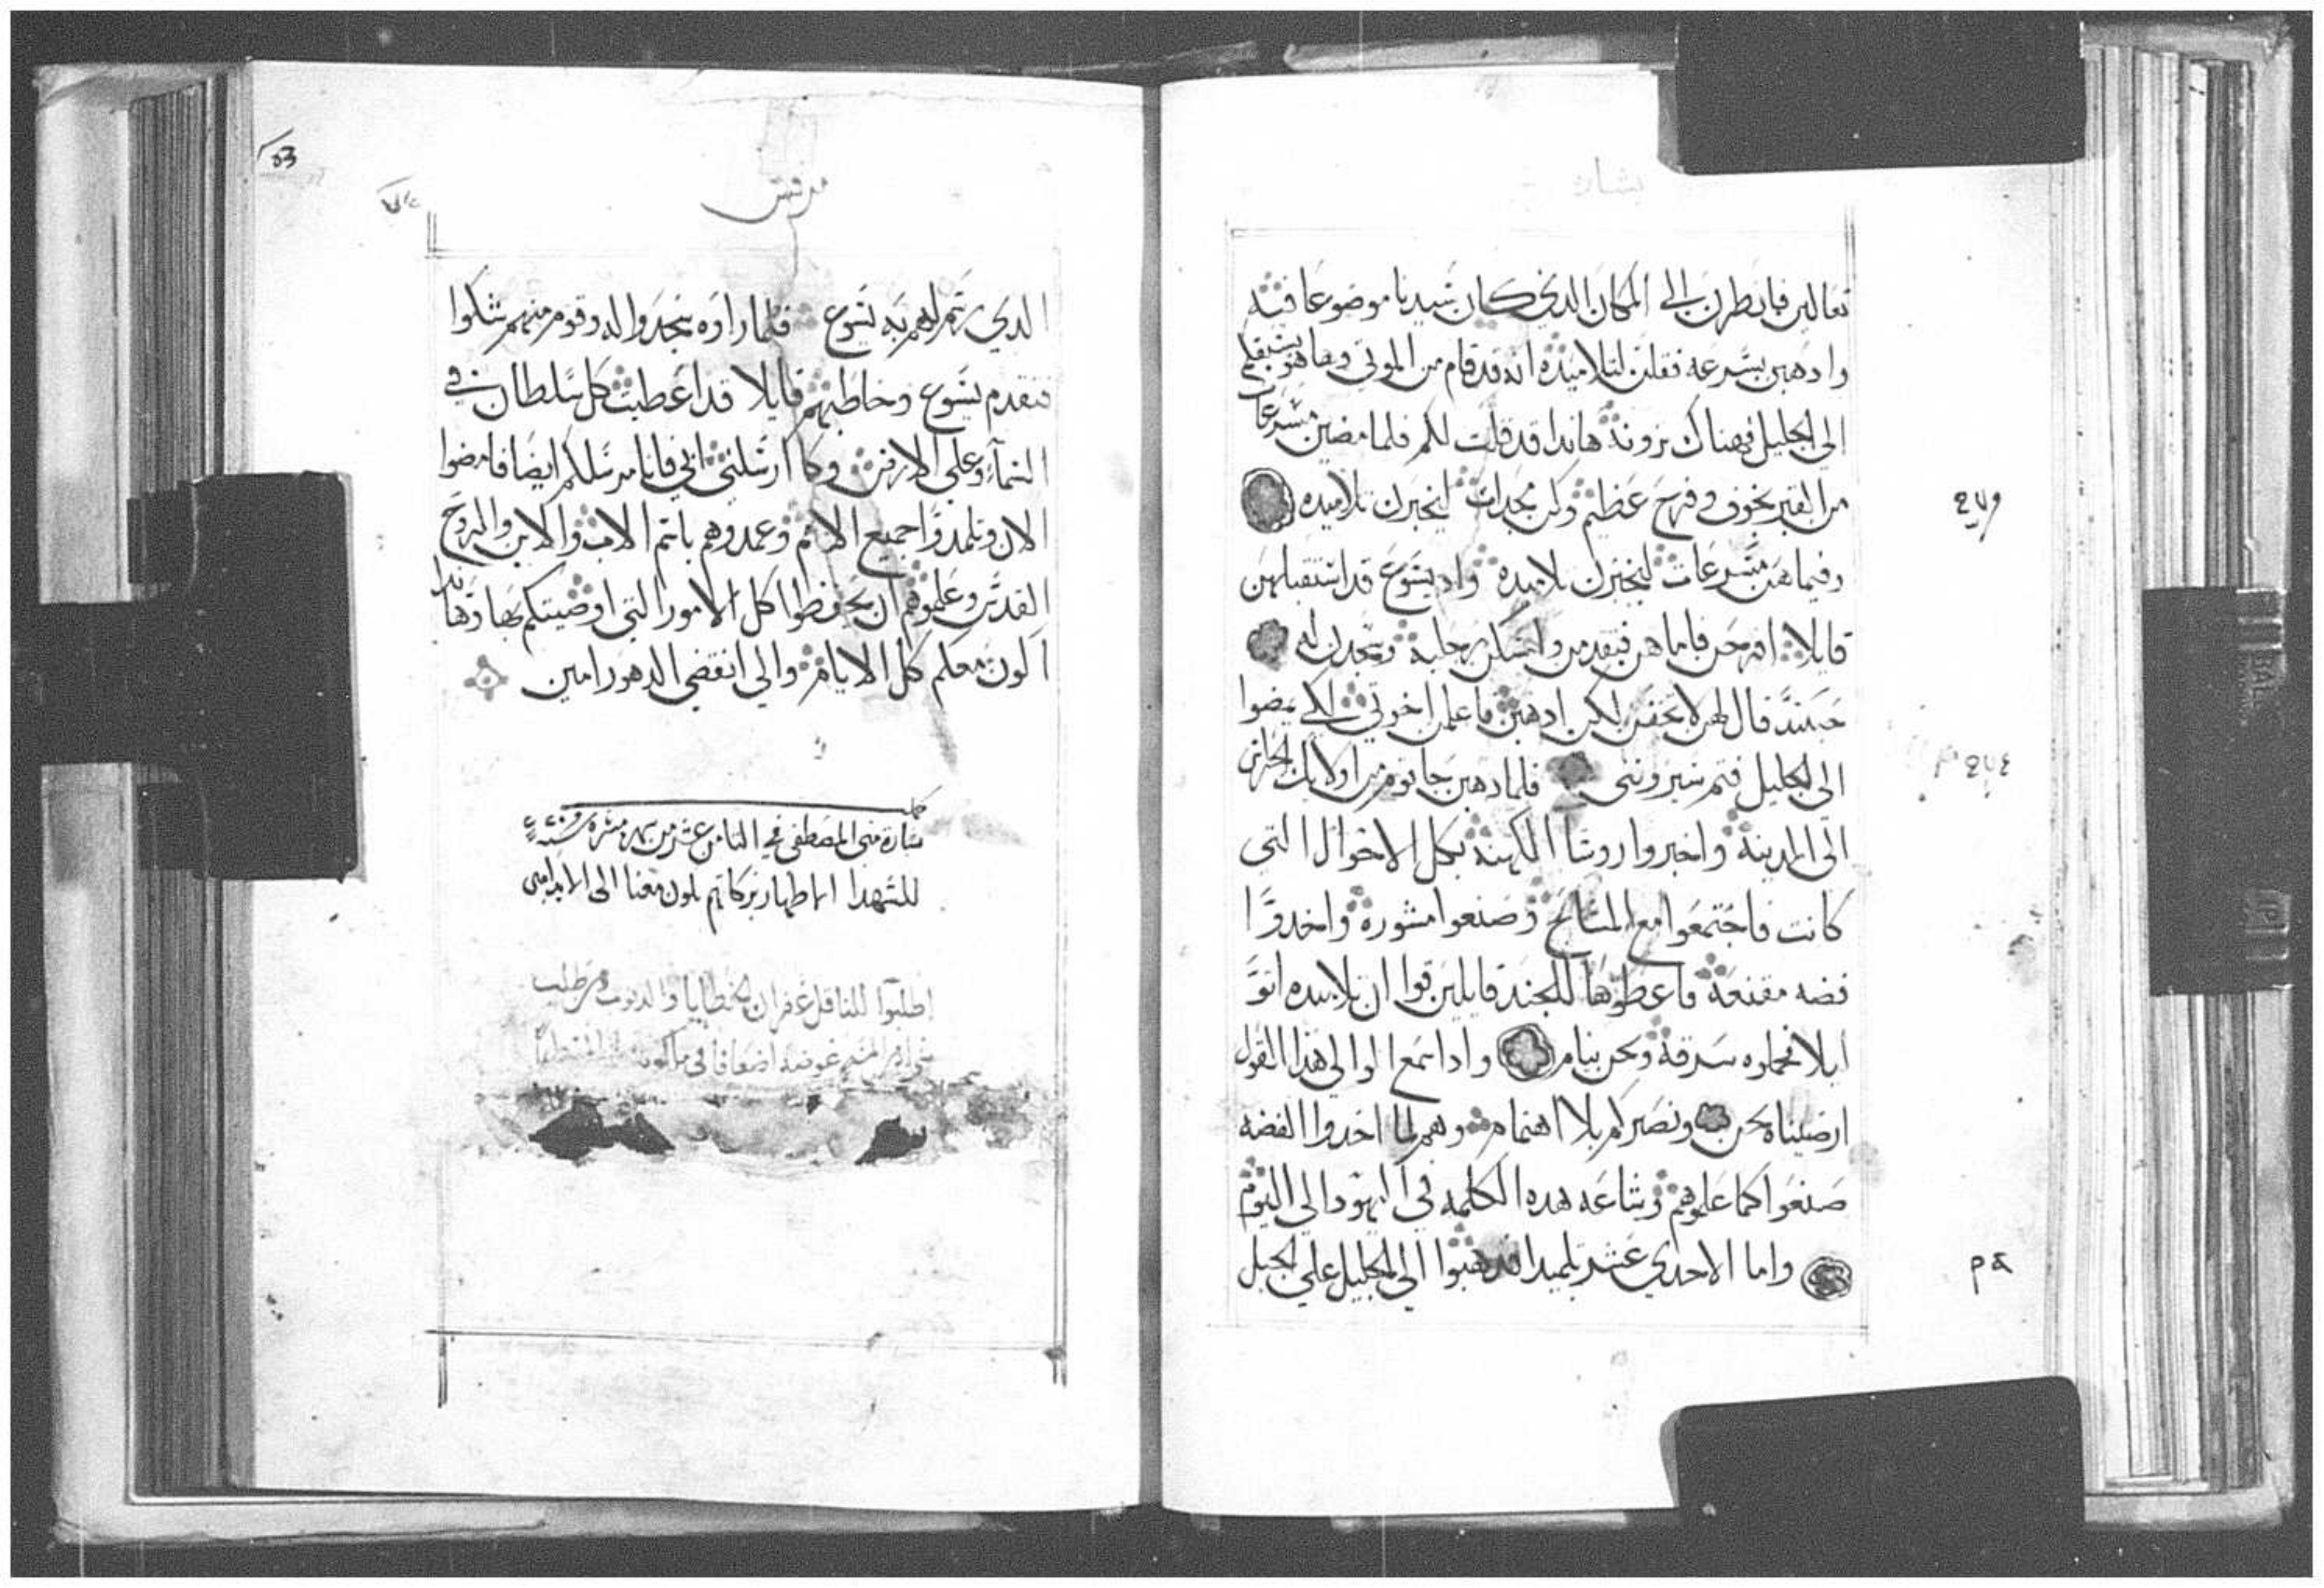 بشارة
تعالين فانظرن الي المكان الدي كان سيدنا موضوعا فيه
وادهبن بسرعه فقلن لتلاميده انه قد قام من الموتي وها هو يسبقكم
الي الجليل فهناك ترونه هاندا قد قلت لكم فلما مضين مسرعات
من القبر بخوف وفرح عظيم وكن مجدات ليخبرن تلاميده
وفيما هن مسرعات ليخبرن تلاميده واد يسوع قد استقبلهن
قايلا افرحن فاما هن فتقدمن وامسكن رجليه وسجدن له
حينئد قال لهن لا تخفن لكن ادهبن فاعلمن اخوتي لكي يمضوا
الي الجليل فتم سيروني فلما دهبن جا قوم من اولايك الحراس
الي المدينه واخبروا روسا الكهنه بكل الاحوال التي
كانت فاجتمعوا مع المشايخ وصنعوا مشوره واخدوا
فضه مقنعه فاعطوها للجند قايلين قولوا ان تلاميده اتوا
ليلا فحملوه سرقه ونحن نيام وادا سمع الوالي هدا القول
ارضيناه نحن ونصيركم بلا اهتمام وهم لما اخدوا الفضه
صنعوا كما علموهم وشاعه هده الكلمه في اليهود الي اليوم
واما الاحدي عشر تلميدا فدهبوا الي الجليل علي الجبل
مرقس
الدي رسم لهم به يسوع فلما راوه سجدوا له وقوم منهم شكوا
فتقدم يسوع وخاطبهم قايلا قد اعطيت كل سلطان في
السمآء وعلي الارض وكما ارسلني ابي فانا مرسلكم ايضا فامضوا
الان وتلمدوا جميع الامم وعمدوهم باسم الاب والابن والروح
القدس وعلموهم ان يحفظوا كل الامور التي اوصيتكم بها وهاندا
اكون معكم كل الايام والي انقضي الدهور امين
كمل
بشارة متي المصطفي في الثامن عشر من شهر سنة
للشهدا الاطهار بركاتهم تكون معنا الي الابد امين
اطلبوا للناقل غفران الخطايا والدنوب ومن طلب
عوضه اضعافا في ملكوت